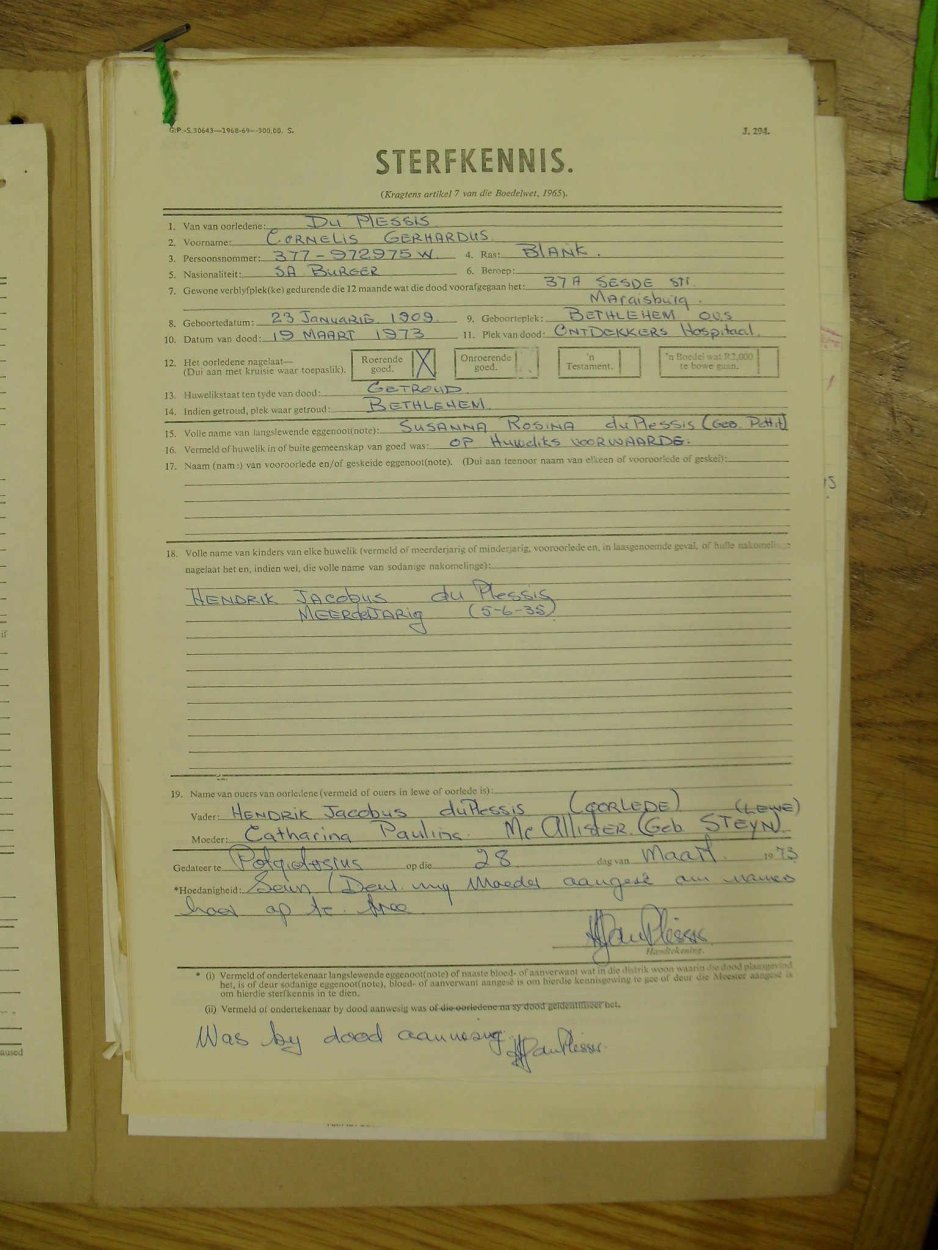 G.P.-S.30643—1968-69—300,00. S. J. 294.
STERFKENNIS.
(Kragtens artikel 7 van die Boedelwet, 1965).
1. Van van oorledene: DU PLESSIS
2. Voorname: CORNELIS GERHARDUS
3. Persoonsnommer: 377-972975 W. 4. Ras: BLANK.
5. Nasionaliteit: SA BURGER 6. Beroep:
7. Gewone verblyfplek(ke) gedurende die 12 maande wat die dood voorafgegaan het: 37A SESDE STR
Maraisburg.
8. Geboortedatum: 23 JANUARIE 1909. 9. Geboorteplek: BETHLEHEM OVS
10. Datum van dood: 19 MAART 1973 11. Plek van dood: ONTDEKKERS Hospitaal.
12. Het oorledene nagelaat— Roerende Onroerende 'n 'n Boedel wat R2,000
(Dui aan met kruisie waar toepaslik). goed. X goed. Testament. te bowe gaan.
13. Huwelikstaat ten tyde van dood: GETROUD
14. Indien getroud, plek waar getroud: BETHLEHEM.
15. Volle name van langslewende eggenoot(note): SUSANNA ROSINA du PLESSIS (Geb. Pettit)
16. Vermeld of huwelik in of buite gemeenskap van goed was: OP HUWELIKS VOORWAARDE.
17. Naam (name) van vooroorlede en/of geskeide eggenoot(note). (Dui aan teenoor naam van elkeen of vooroorlede of geskei):
18. Volle name van kinders van elke huwelik (vermeld of meerderjarig of minderjarig, vooroorlede en, in laasgenoemde geval, of hulle nakomelinge
nagelaat het en, indien wel, die volle name van sodanige nakomelinge):
HENDRIK JACOBUS du Plessis
MEERDERJARIG (5-6-35)
19. Name van ouers van oorledene (vermeld of ouers in lewe of oorlede is):
Vader: HENDRIK JACOBUS duPlessis (OORLEDE) (LEWE)
Moeder: Catharina Paulina Mc Allister (Geb STEYN).
Gedateer te op die 28 dag van Maart 1973
*Hoedanigheid: Seun (Deur my Moeder aangesê om namens
haar op te tree
HJ du Plessis
Handtekening.
* (i) Vermeld of ondertekenaar langslewende eggenoot(note) of naaste bloed- of aanverwant wat in die distrik woon waarin die dood plaasgevind
het, is of deur sodanige eggenoot(note), bloed- of aanverwant aangesê is om hierdie kennisgewing te gee of deur die Meester aangesê is
om hierdie sterfkennis in te dien.
(ii) Vermeld of ondertekenaar by dood aanwesig was of die oorledene na sy dood geïdentifiseer het.
Was by dood aanwesig. HJ du Plessis